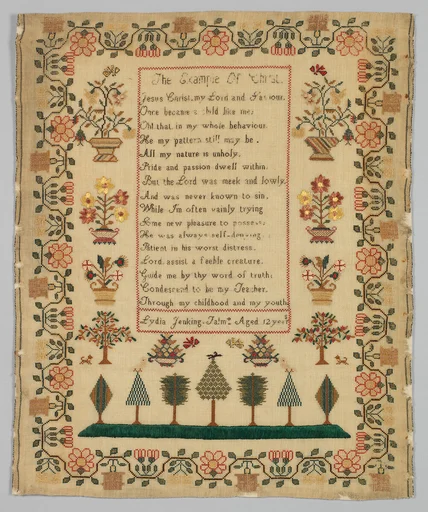 The Example Of Christ.
Jesus Christ, my Lord and Saviour,
Once became a child like me;
Oh! that in my whole behaviour,
He my pattern still may be.
All my nature is unholy,
Pride and passion dwell within,
But the Lord was meek and lowly,
And was never known to sin,
While I'm often vainly trying
Some new pleasure to possess;
He was always self-denying,
Patient in his worst distress.
Lord, assist a feeble creature,
Guide me by thy word of truth;
Condescend to be my Teacher,
Through my childhood and my youth
Lydia Aged 12 years